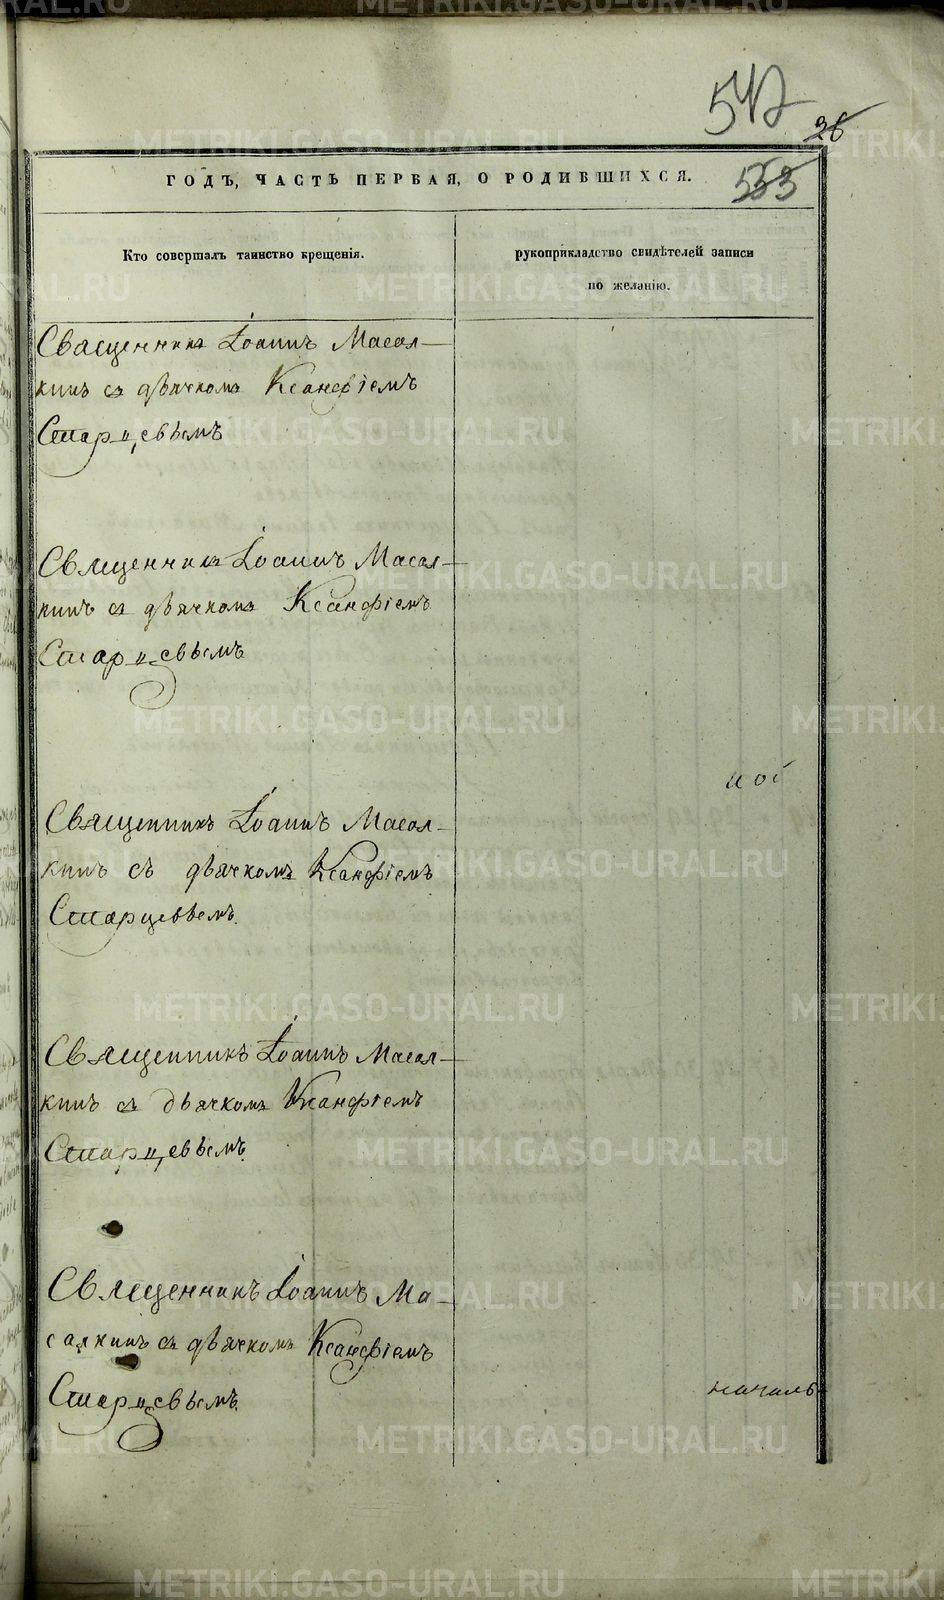 542
26
553
ГОДЪ, ЧАСТЬ ПЕРВАЯ, О РОДИВШИХСЯ.
Кто совершалъ таинство крещенія.
рукоприкладство свидѣтелей записи
по желанію.
Священникъ Іоаннъ Масал-
кинъ съ дьячкомъ Ксанфіемъ
Старцевымъ
Священникъ Іоаннъ Масал-
кинъ съ дьячкомъ Ксанфіемъ
Старцевымъ
ной
Священникъ Іоаннъ Масал-
кинъ съ дьячкомъ Ксанфіемъ
Старцевымъ.
Священникъ Іоаннъ Масал-
кинъ съ дьячкомъ Ксанфіемъ
Старцевымъ.
Священникъ Іоаннъ Ма-
салкинъ съ дьячкомъ Ксанфіемъ
Старцевымъ.
началь-
METRIKI.GASO-URAL.RU